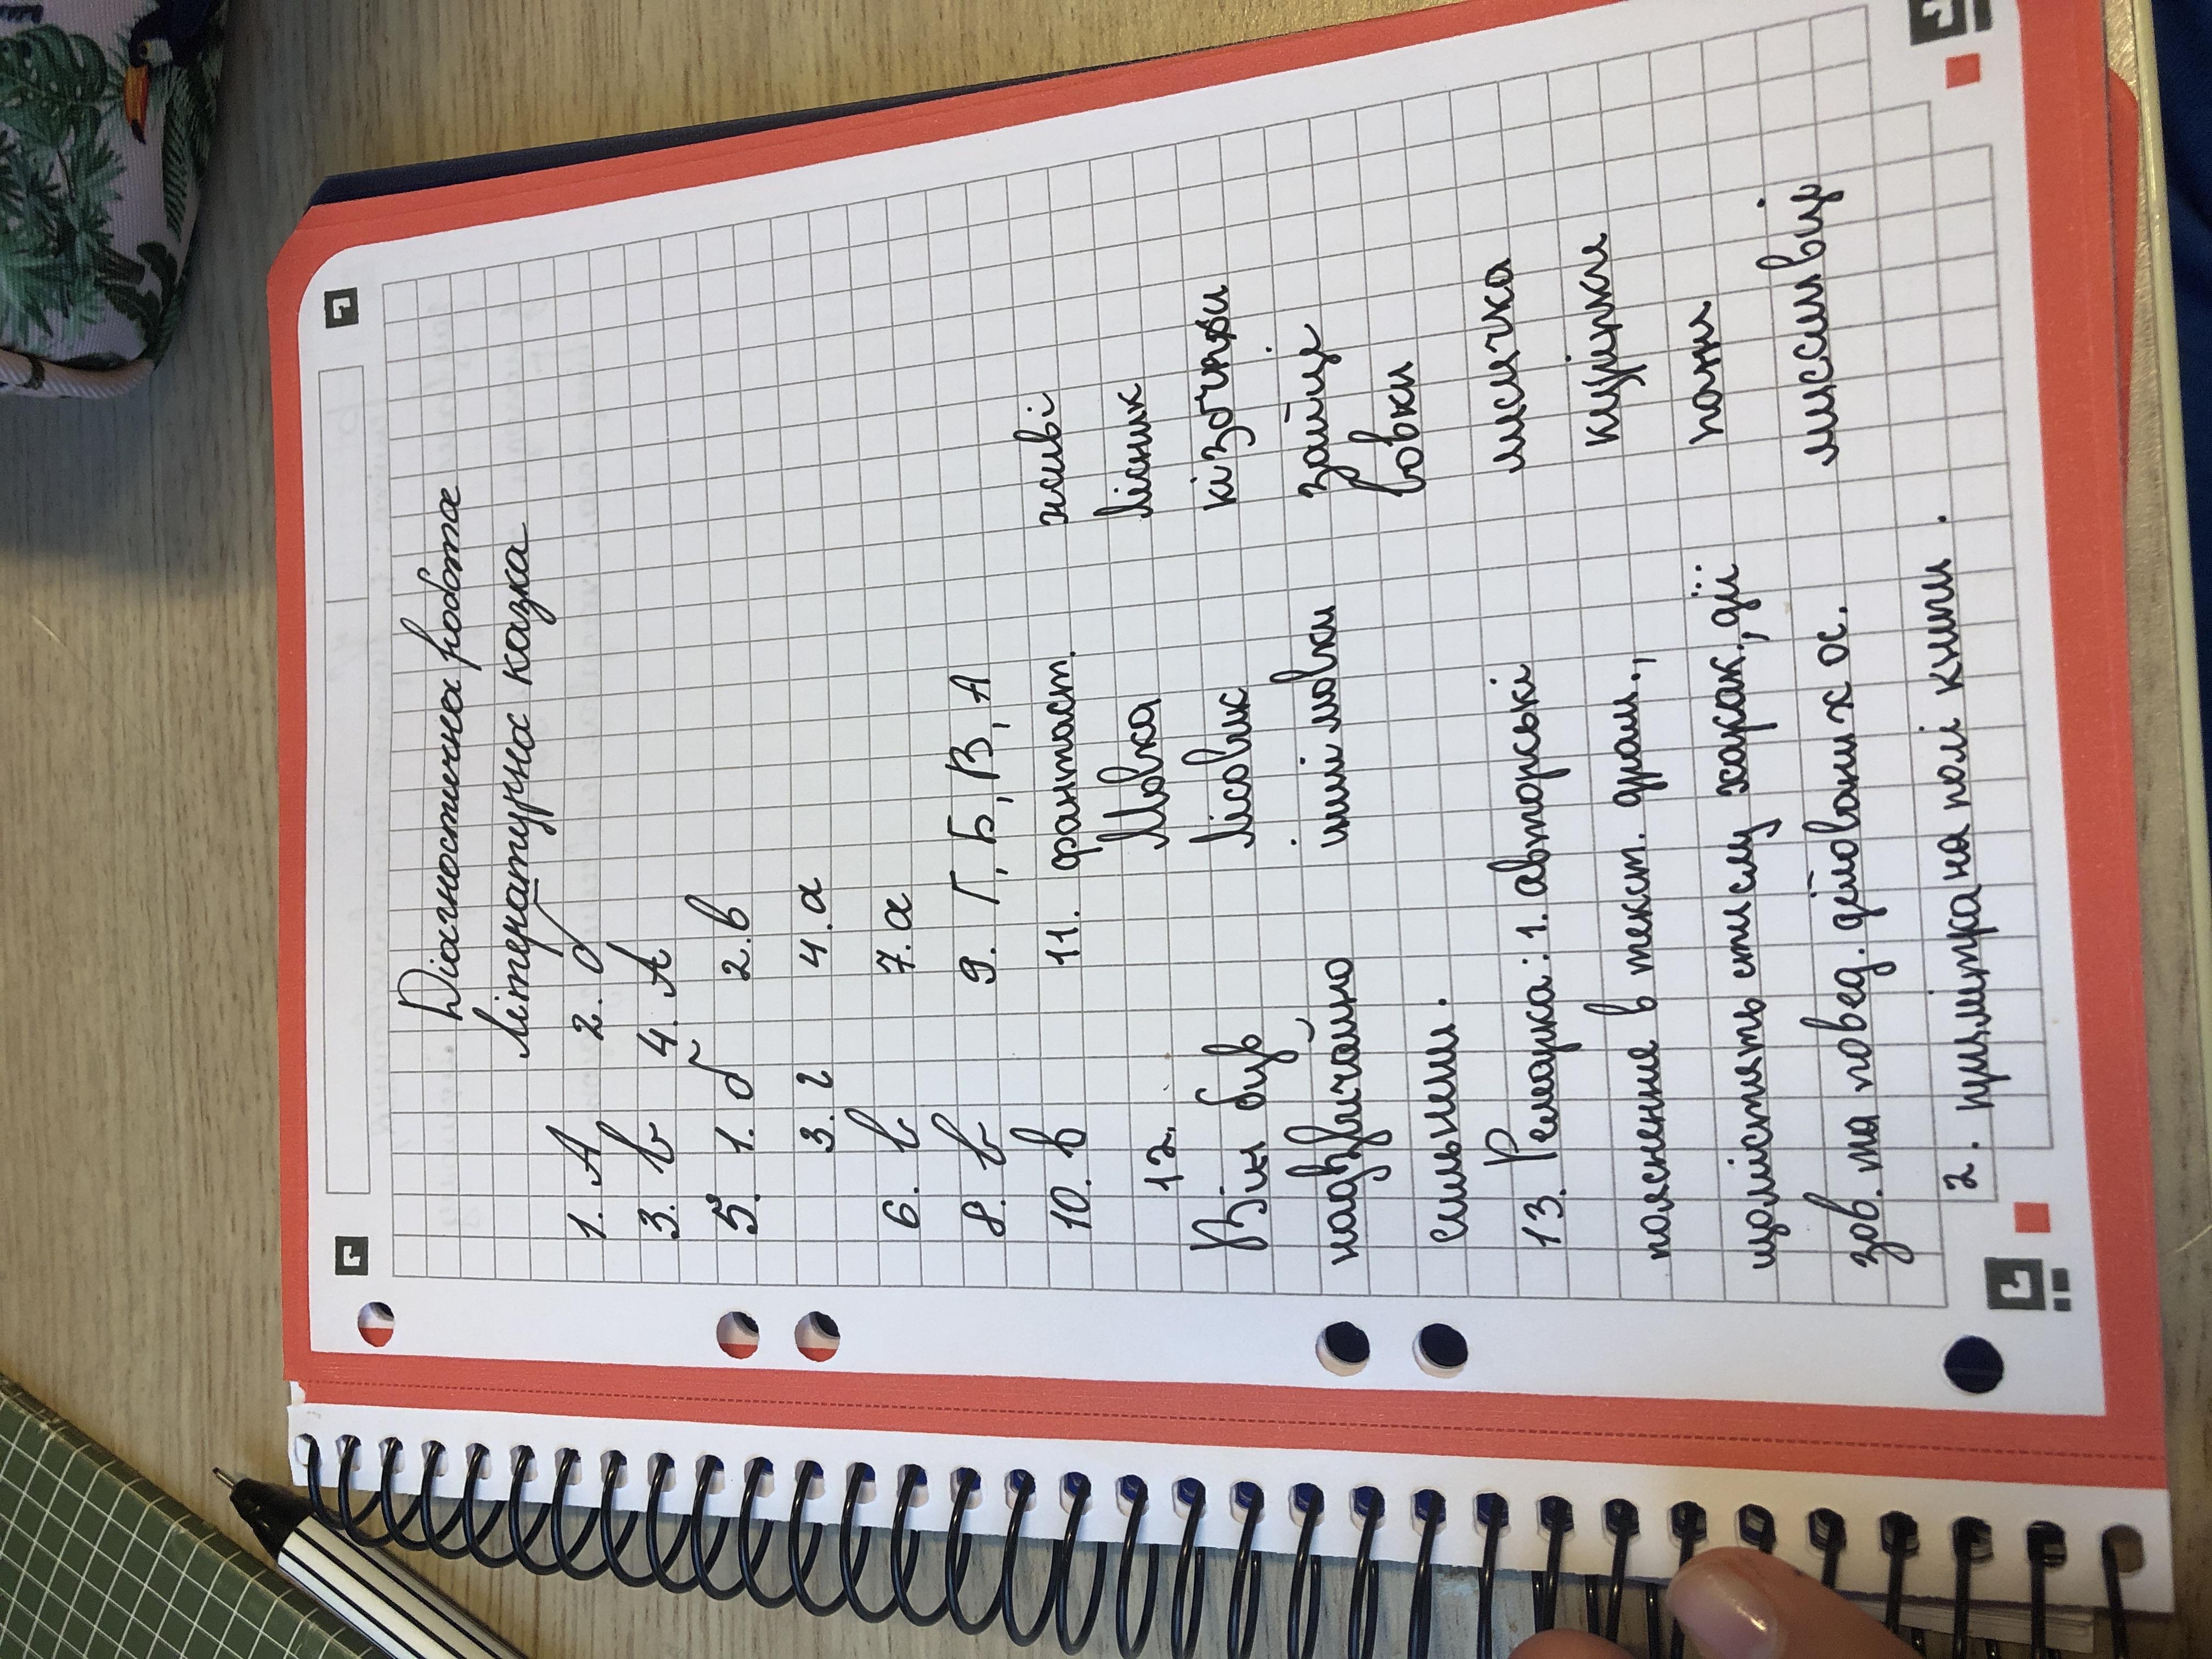 Діагностична робота
літературна казка
1. А 2. б
3. в 4. А
5. 1. б 2. в
3. г 4. а
6. в 7. а
8. в 9. Г, Б, В, А
10. в 11. фантаст. живі
12. Мавка лісник
Він був Лісовик кізочки
надзвичайно інші мавки зайці
сильним. вовки
13. Ремарка: 1. авторські лисичка
пояснення в текст. драм., куріпки
щомістять стислу харак., дії пани
зов. та повед. дійових ос. мисливці
2. примітка на полі книги.